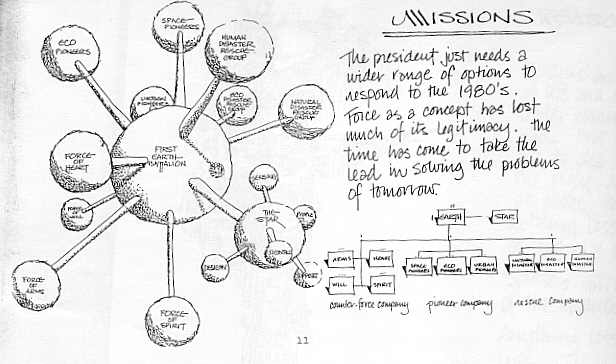 MISSIONS
The president just needs a
wider range of options to
respond to the 1980's.
Force as a concept has lost
much of its legitimacy. The
time has come to take the
lead in solving the problems
of tomorrow.
ECO
PIONEERS
SPACE-
PIONEERS
HUMAN
DISASTER
RESCUE-
GROUP
URBAN
PIONEERS
ECO
DISASTER
RESCUE
GROUP
NATURAL
DISASTER
RESCUE
GROUP
FORCE-
OF
HEART
FIRST
EARTH-
BATTALION
FORCE
OF
WILL
SENSING
THE
STAR
PEOPLE
DESIGN
SUPPORT
FORCE
OF
ARMS
FORCE-
OF
SPIRIT
EARTH
STAR
ARMS
HEART
WILL
SPIRIT
SPACE-
PIONEERS
ECO
PIONEERS
URBAN
PIONEERS
NATURAL
DISASTER
ECO
DISASTER
HUMAN
DISASTER
counter-force company
pioneer company
rescue company
11